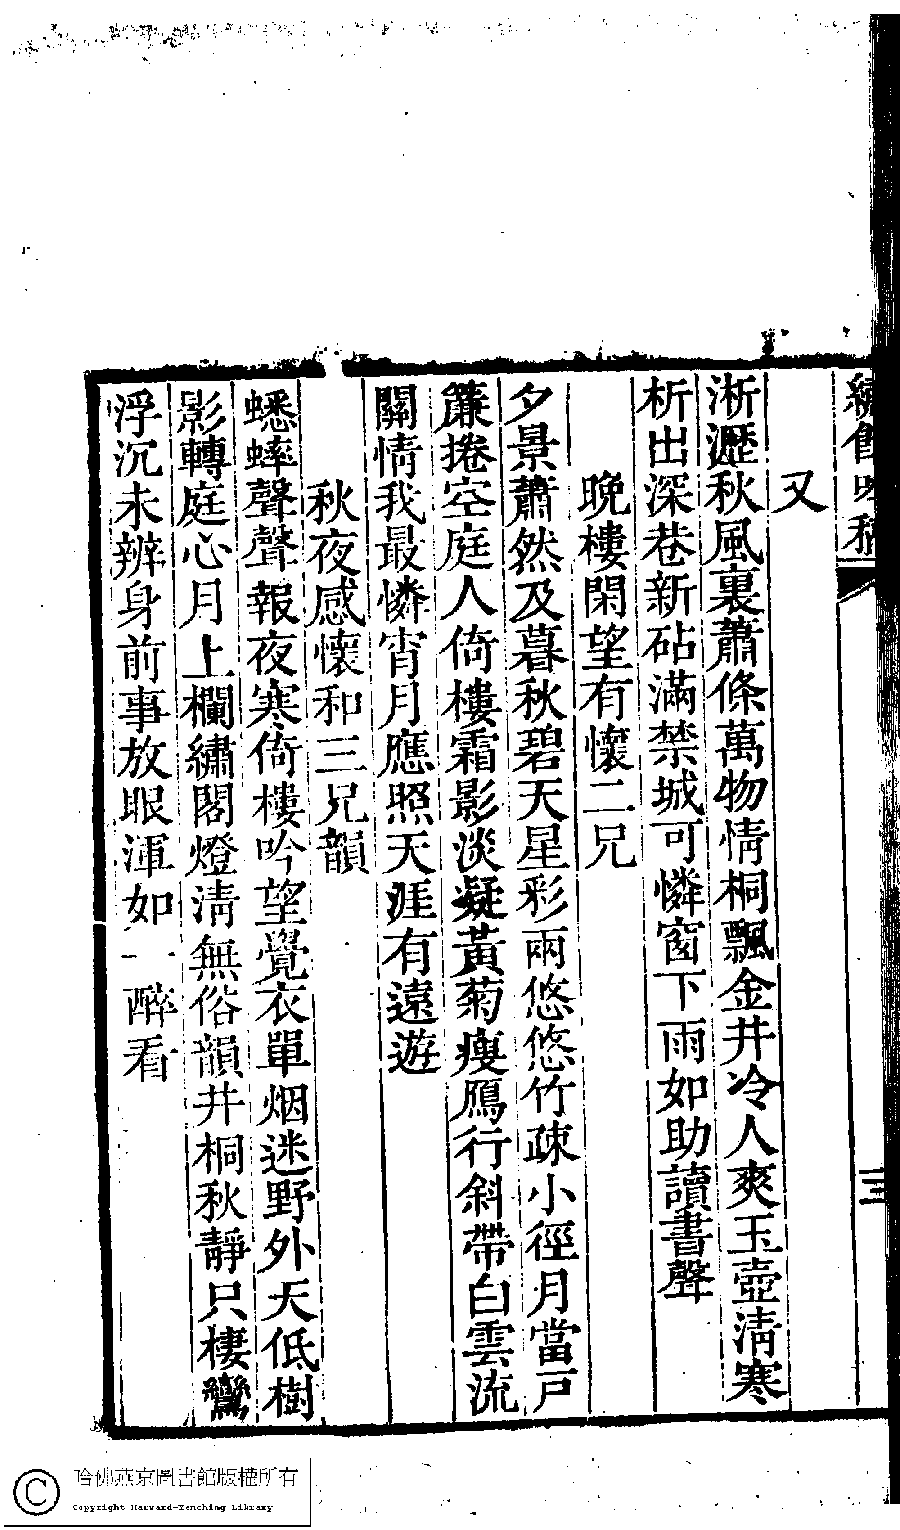 又
淅瀝秋風裏蕭條萬物情桐飄金井冷人爽玉壺淸寒
柝出深巷新砧滿禁城可憐窗下雨如助讀書聲
晩樓閑望有懷二兄
夕景蕭然及暮秋碧天星彩兩悠悠竹疎小徑月當戸
簾捲空庭人倚樓霜影淡凝黃菊瘦鴈行斜帶白雲流
關情我最憐宵月應照天涯有遠遊
秋夜感懷和三兄韻
蟋蟀聲聲報夜寒倚樓吟望覺衣單烟迷野外天低樹
影轉庭心月上欄繡閣燈淸無俗韻井桐秋靜只棲鸞
浮沉未辨身前事放眼渾如一醉看
三
哈佛燕京圖書館版權所有
Copyright Harvard-Yenching Library